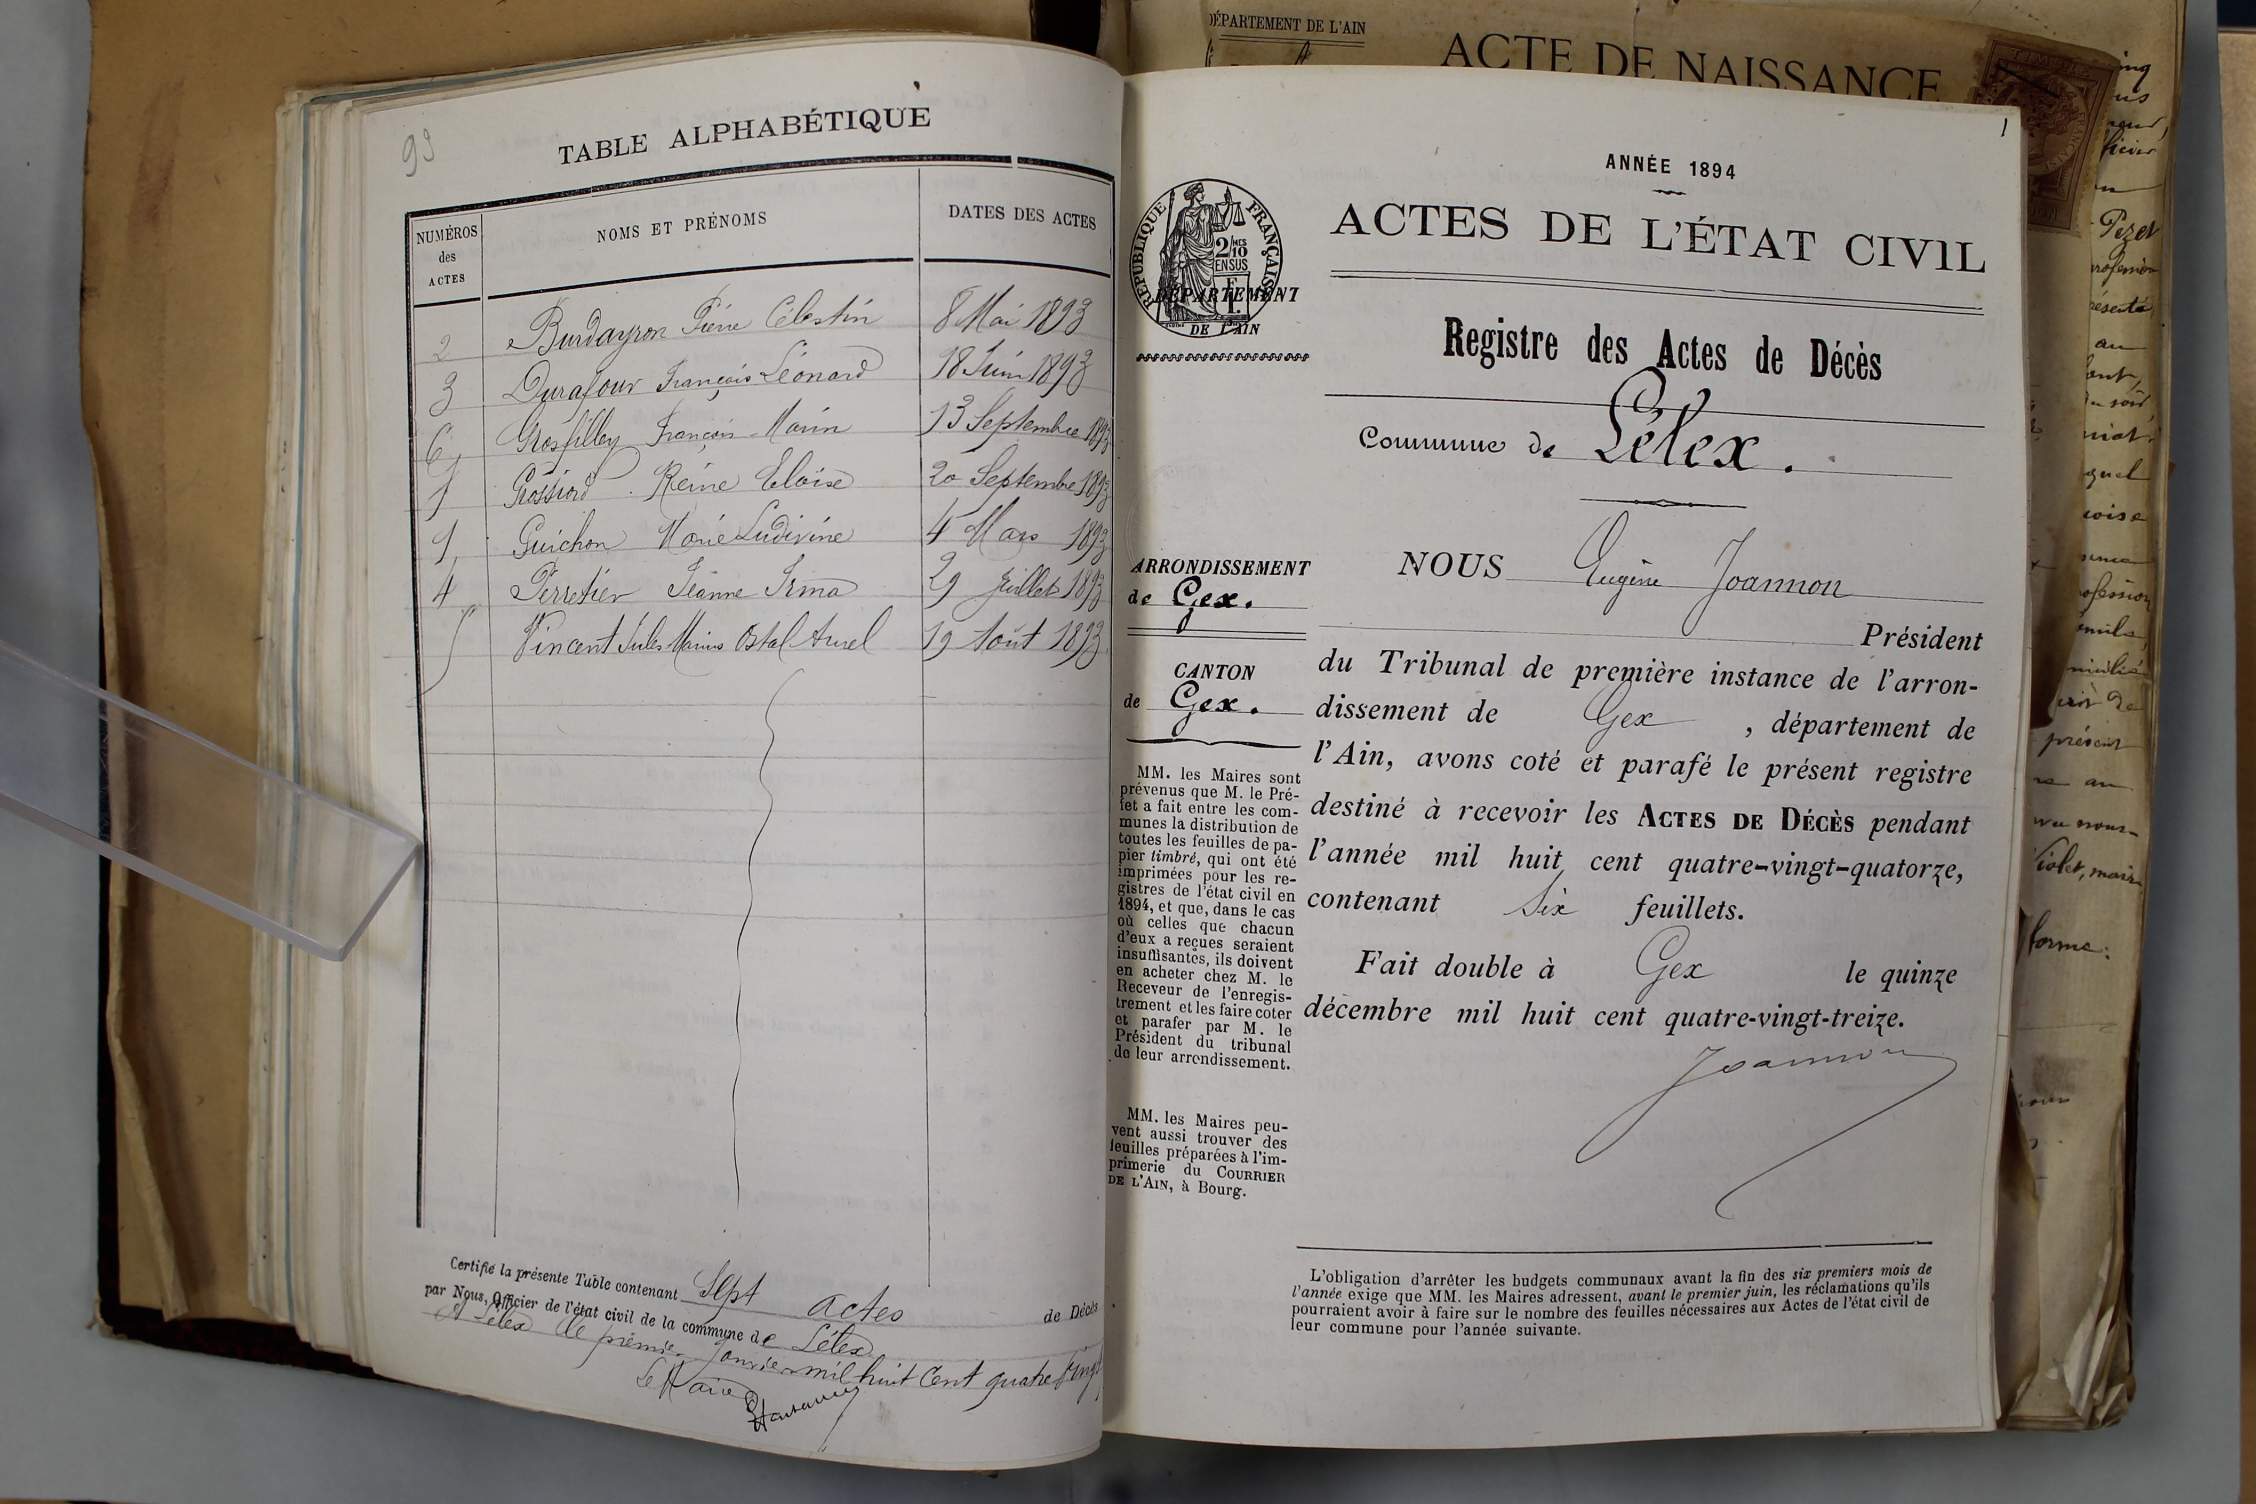 93
TABLE ALPHABÉTIQUE
NUMÉROS des ACTES
NOMS ET PRÉNOMS
DATES DES ACTES
2 Burdayron Pierre Célestin 8 Mai 1893
3 Durafour François Léonard 18 Juin 1893
6 Grosfilley François Marin 13 Septembre 1893
Grossiord Reine Eloïse 20 Septembre 1893
1 Guichon Marie Ludivine 4 Mars 1893
4 Perretier Jeanne Irma 29 Juillet 1893
5 Vincent Jules Marius Ostal Aurel 19 Août 1893
Certifié la présente Table contenant Sept actes de Décès
par Nous, Officier de l'état civil de la commune de Lélex
A Lélex le premier Janvier mil huit cent quatre vingt
Le Maire
DÉPARTEMENT DE L'AIN
ACTE DE NAISSANCE
1
ANNÉE 1894
ACTES DE L'ÉTAT CIVIL
RÉPUBLIQUE FRANÇAISE
2/10 MES
EN SUS
DÉPARTEMENT
DE L'AIN
Registre des Actes de Décès
Commune de Lélex.
ARRONDISSEMENT
de Gex.
CANTON
de Gex.
MM. les Maires sont
prévenus que M. le Pré-
fet a fait entre les com-
munes la distribution de
toutes les feuilles de pa-
pier timbré, qui ont été
imprimées pour les re-
gistres de l'état civil en
1894, et que, dans le cas
où celles que chacun
d'eux a reçues seraient
insuffisantes, ils doivent
en acheter chez M. le
Receveur de l'enregis-
trement et les faire coter
et parafer par M. le
Président du tribunal
de leur arrondissement.
MM. les Maires peu-
vent aussi trouver des
feuilles préparées à l'im-
primerie du COURRIER
DE L'AIN, à Bourg.
NOUS Eugène Joannon
Président
du Tribunal de première instance de l'arron-
dissement de Gex, département de
l'Ain, avons coté et parafé le présent registre
destiné à recevoir les ACTES DE DÉCÈS pendant
l'année mil huit cent quatre-vingt-quatorze,
contenant Six feuillets.
Fait double à Gex le quinze
décembre mil huit cent quatre-vingt-treize.
Joannon
L'obligation d'arrêter les budgets communaux avant la fin des six premiers mois de
l'année exige que MM. les Maires adressent, avant le premier juin, les réclamations qu'ils
pourraient avoir à faire sur le nombre des feuilles nécessaires aux Actes de l'état civil de
leur commune pour l'année suivante.
Pezet
profession
au
présent
Violet, maire
forme.